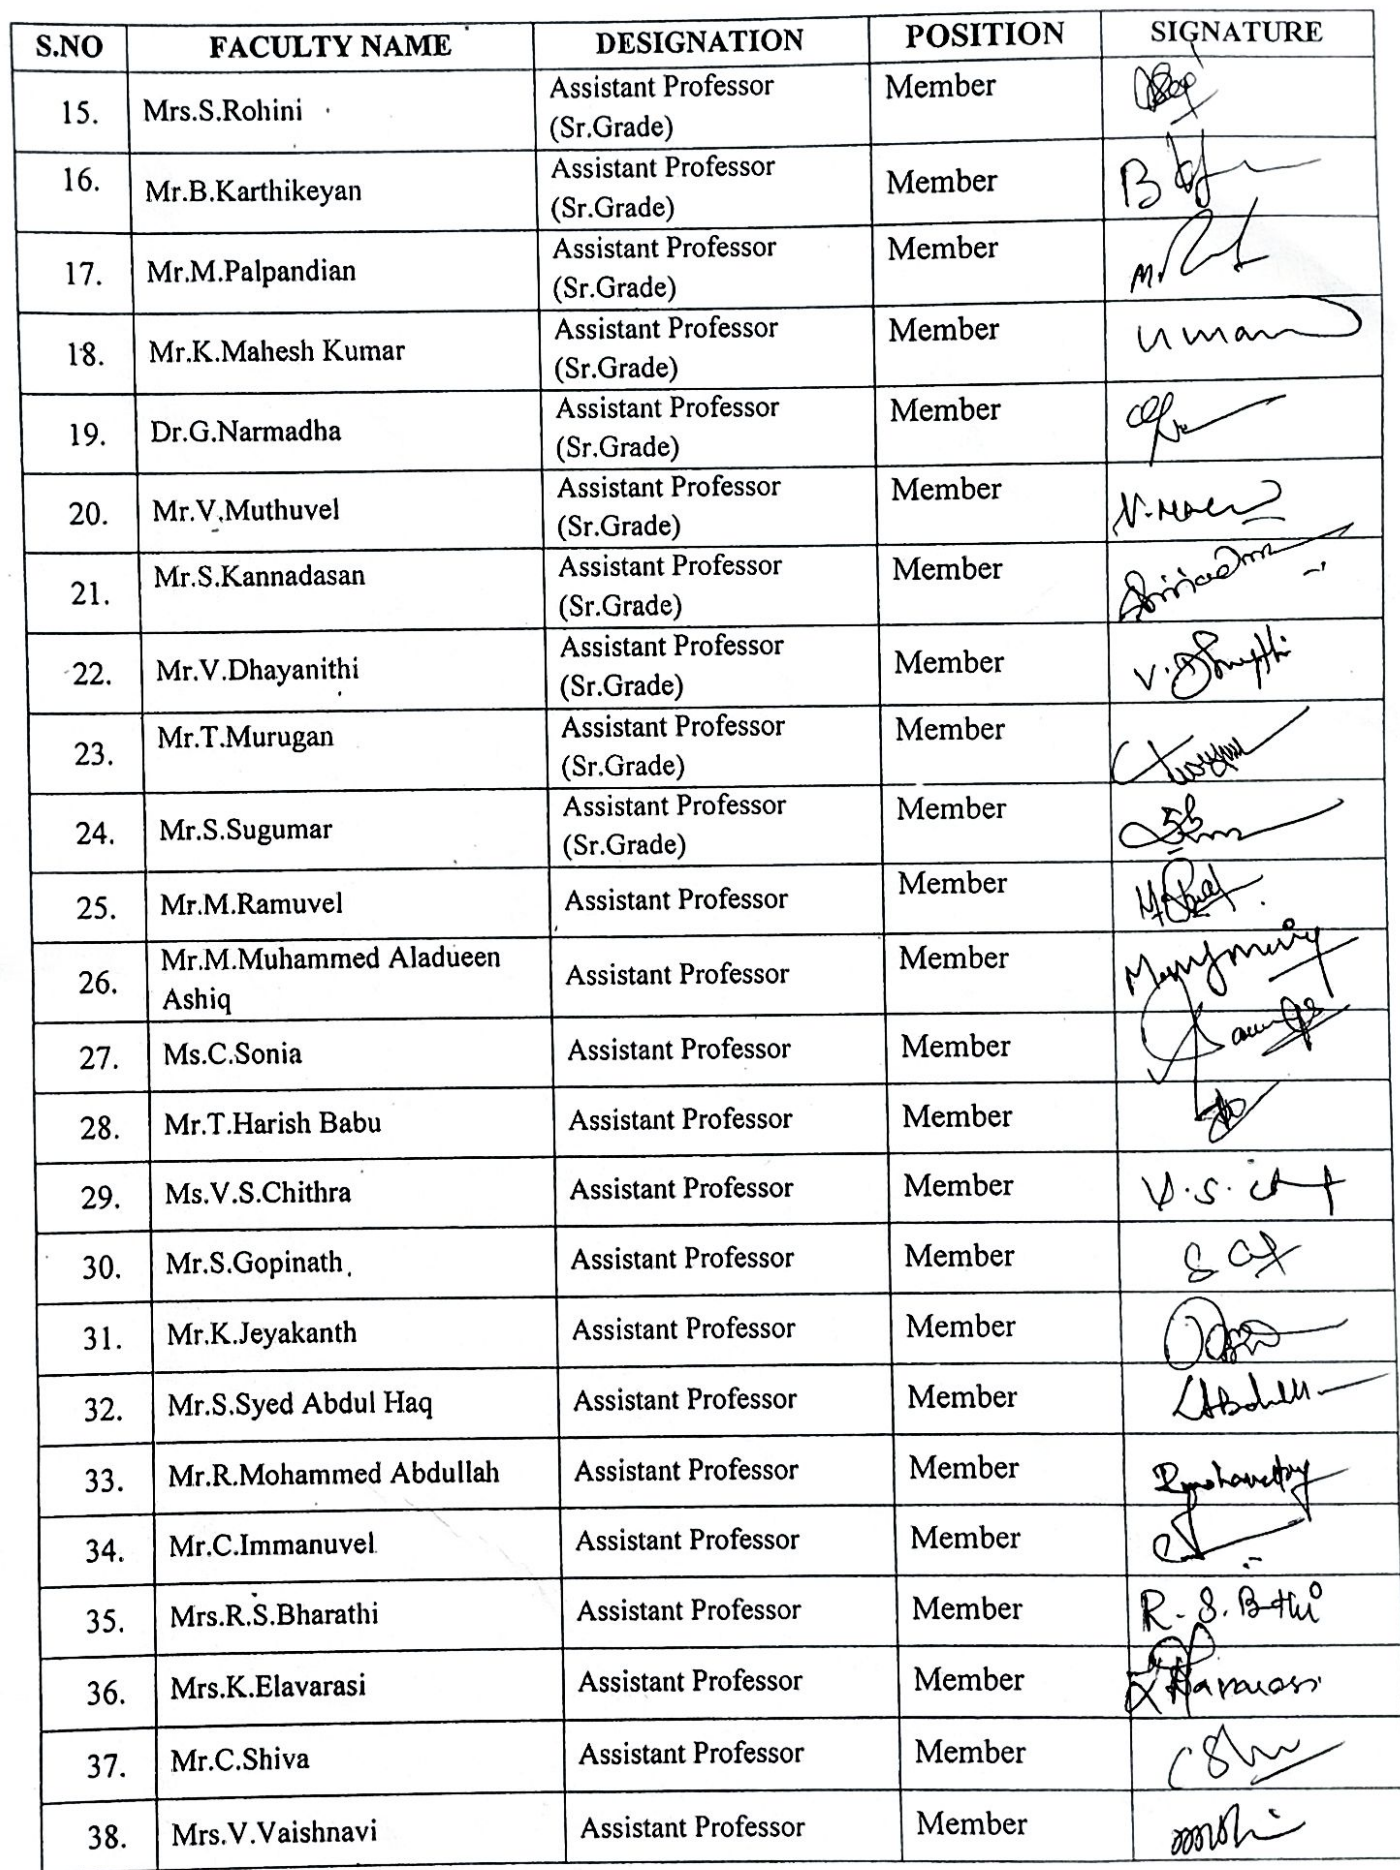 S.NO FACULTY NAME DESIGNATION POSITION SIGNATURE
15. Mrs.S.Rohini Assistant Professor (Sr.Grade) Member
16. Mr.B.Karthikeyan Assistant Professor (Sr.Grade) Member
17. Mr.M.Palpandian Assistant Professor (Sr.Grade) Member
18. Mr.K.Mahesh Kumar Assistant Professor (Sr.Grade) Member
19. Dr.G.Narmadha Assistant Professor (Sr.Grade) Member
20. Mr.V.Muthuvel Assistant Professor (Sr.Grade) Member
21. Mr.S.Kannadasan Assistant Professor (Sr.Grade) Member
22. Mr.V.Dhayanithi Assistant Professor (Sr.Grade) Member
23. Mr.T.Murugan Assistant Professor (Sr.Grade) Member
24. Mr.S.Sugumar Assistant Professor (Sr.Grade) Member
25. Mr.M.Ramuvel Assistant Professor Member
26. Mr.M.Muhammed Aladueen Ashiq Assistant Professor Member
27. Ms.C.Sonia Assistant Professor Member
28. Mr.T.Harish Babu Assistant Professor Member
29. Ms.V.S.Chithra Assistant Professor Member
30. Mr.S.Gopinath Assistant Professor Member
31. Mr.K.Jeyakanth Assistant Professor Member
32. Mr.S.Syed Abdul Haq Assistant Professor Member
33. Mr.R.Mohammed Abdullah Assistant Professor Member
34. Mr.C.Immanuvel Assistant Professor Member
35. Mrs.R.S.Bharathi Assistant Professor Member
36. Mrs.K.Elavarasi Assistant Professor Member
37. Mr.C.Shiva Assistant Professor Member
38. Mrs.V.Vaishnavi Assistant Professor Member